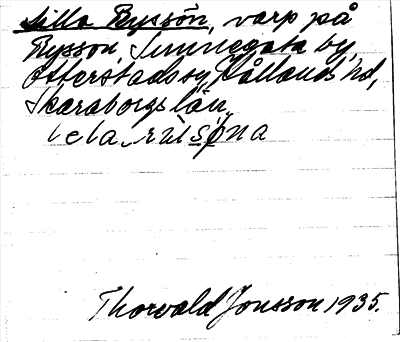 Lilla Rysson, varp på
Rysson, Sunnegata by,
Otterstads sn, Kållands hd,
Skaraborgs län.
Thorvald Jonsson 1935.